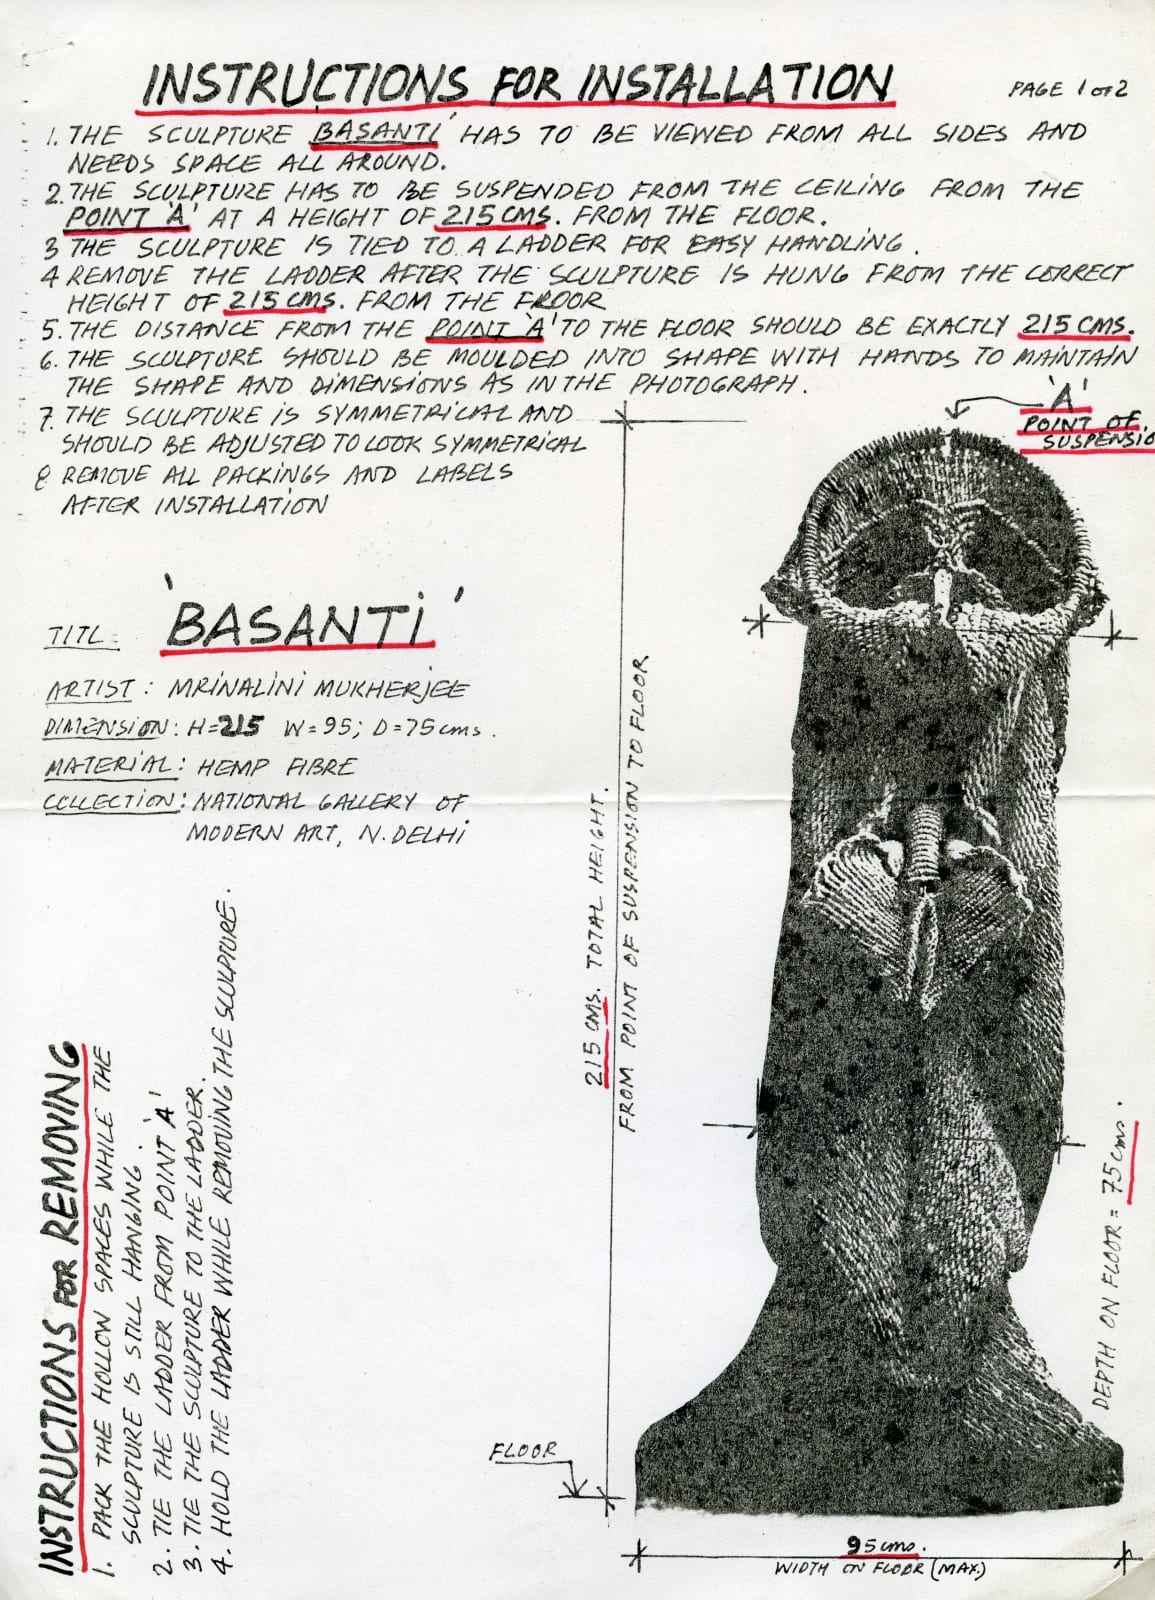 INSTRUCTIONS FOR INSTALLATION
PAGE 1 OF 2
1. THE SCULPTURE 'BASANTI' HAS TO BE VIEWED FROM ALL SIDES AND
NEEDS SPACE ALL AROUND.
2. THE SCULPTURE HAS TO BE SUSPENDED FROM THE CEILING FROM THE
POINT 'A' AT A HEIGHT OF 215 CMS. FROM THE FLOOR.
3 THE SCULPTURE IS TIED TO A LADDER FOR EASY HANDLING.
4 REMOVE THE LADDER AFTER THE SCULPTURE IS HUNG FROM THE CORRECT
HEIGHT OF 215 CMS. FROM THE FROOR
5. THE DISTANCE FROM THE POINT 'A' TO THE FLOOR SHOULD BE EXACTLY 215 CMS.
6. THE SCULPTURE SHOULD BE MOULDED INTO SHAPE WITH HANDS TO MAINTAIN
THE SHAPE AND DIMENSIONS AS IN THE PHOTOGRAPH.
7. THE SCULPTURE IS SYMMETRICAL AND
SHOULD BE ADJUSTED TO LOOK SYMMETRICAL
8 REMOVE ALL PACKINGS AND LABELS
AFTER INSTALLATION
'A'
POINT OF
SUSPENSIO
TITL: 'BASANTI'
ARTIST: MRINALINI MUKHERJEE
DIMENSION: H=215 W=95; D=75 cms.
MATERIAL: HEMP FIBRE
COLLECTION: NATIONAL GALLERY OF
MODERN ART, N. DELHI
215 CMS. TOTAL HEIGHT.
FROM POINT OF SUSPENSION TO FLOOR
INSTRUCTIONS FOR REMOVING
1. PACK THE HOLLOW SPACES WHILE THE
SCULPTURE IS STILL HANGING.
2. TIE THE LADDER FROM POINT 'A'
3. TIE THE SCULPTURE TO THE LADDER.
4. HOLD THE LADDER WHILE REMOVING THE SCULPTURE.
FLOOR
DEPTH ON FLOOR = 75 cms.
95 cms.
WIDTH ON FLOOR (MAX.)